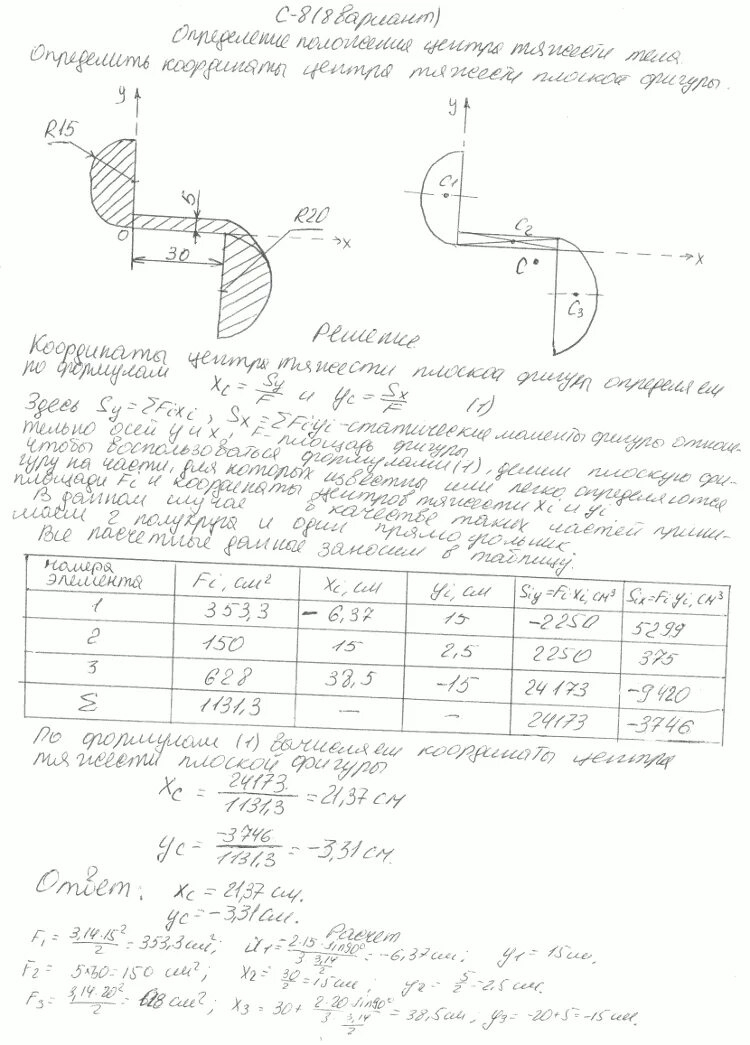 С-8 (8 вариант)
Определение положения центра тяжести тела.
Определить координаты центра тяжести плоской фигуры.
y
R15
5
R20
0
30
x
y
C1
C2
C
C3
x
Решение
Координаты центра тяжести плоской фигуры определяем
по формулам xc = Sy/F и yc = Sx/F (1)
Здесь Sy=ΣFixi, Sx=ΣFiyi - статические моменты фигуры относи-
тельно осей y и x, F - площадь фигуры
чтобы воспользоваться формулами (1), делим плоскую фи-
гуру на части, для которых известны или легко определяются
площади Fi и координаты центров тяжести xi и yi
В данном случае в качестве таких частей прини-
маем 2 полукруга и один прямоугольник.
Все расчетные данные заносим в таблицу.
номера элемента | Fi, см² | Xi, см | yi, см | Siy=Fi xi, см³ | Six=Fi yi, см³
1 | 353,3 | -6,37 | 15 | -2250 | 5299
2 | 150 | 15 | 2,5 | 2250 | 375
3 | 628 | 38,5 | -15 | 24173 | -9420
Σ | 1131,3 | — | — | 24173 | -3746
По формулам (1) вычисляем координаты центра
тяжести плоской фигуры
Xc = 24173/1131,3 = 21,37 см
yc = -3746/1131,3 = -3,31 см.
Ответ: Xc = 21,37 см.
yc = -3,31 см.
Расчет
F1 = 3,14·15²/2 = 353,3 см²; x1 = 2·15·sin90°/(3·3,14/2) = -6,37 см; y1 = 15 см.
F2 = 5·30 = 150 см²; x2 = 30/2 = 15 см; y2 = 5/2 = 2,5 см.
F3 = 3,14·20²/2 = 628 см²; x3 = 30 + 2·20 sin90°/(3·3,14/2) = 38,5 см, y3 = -20+5 = -15 см.